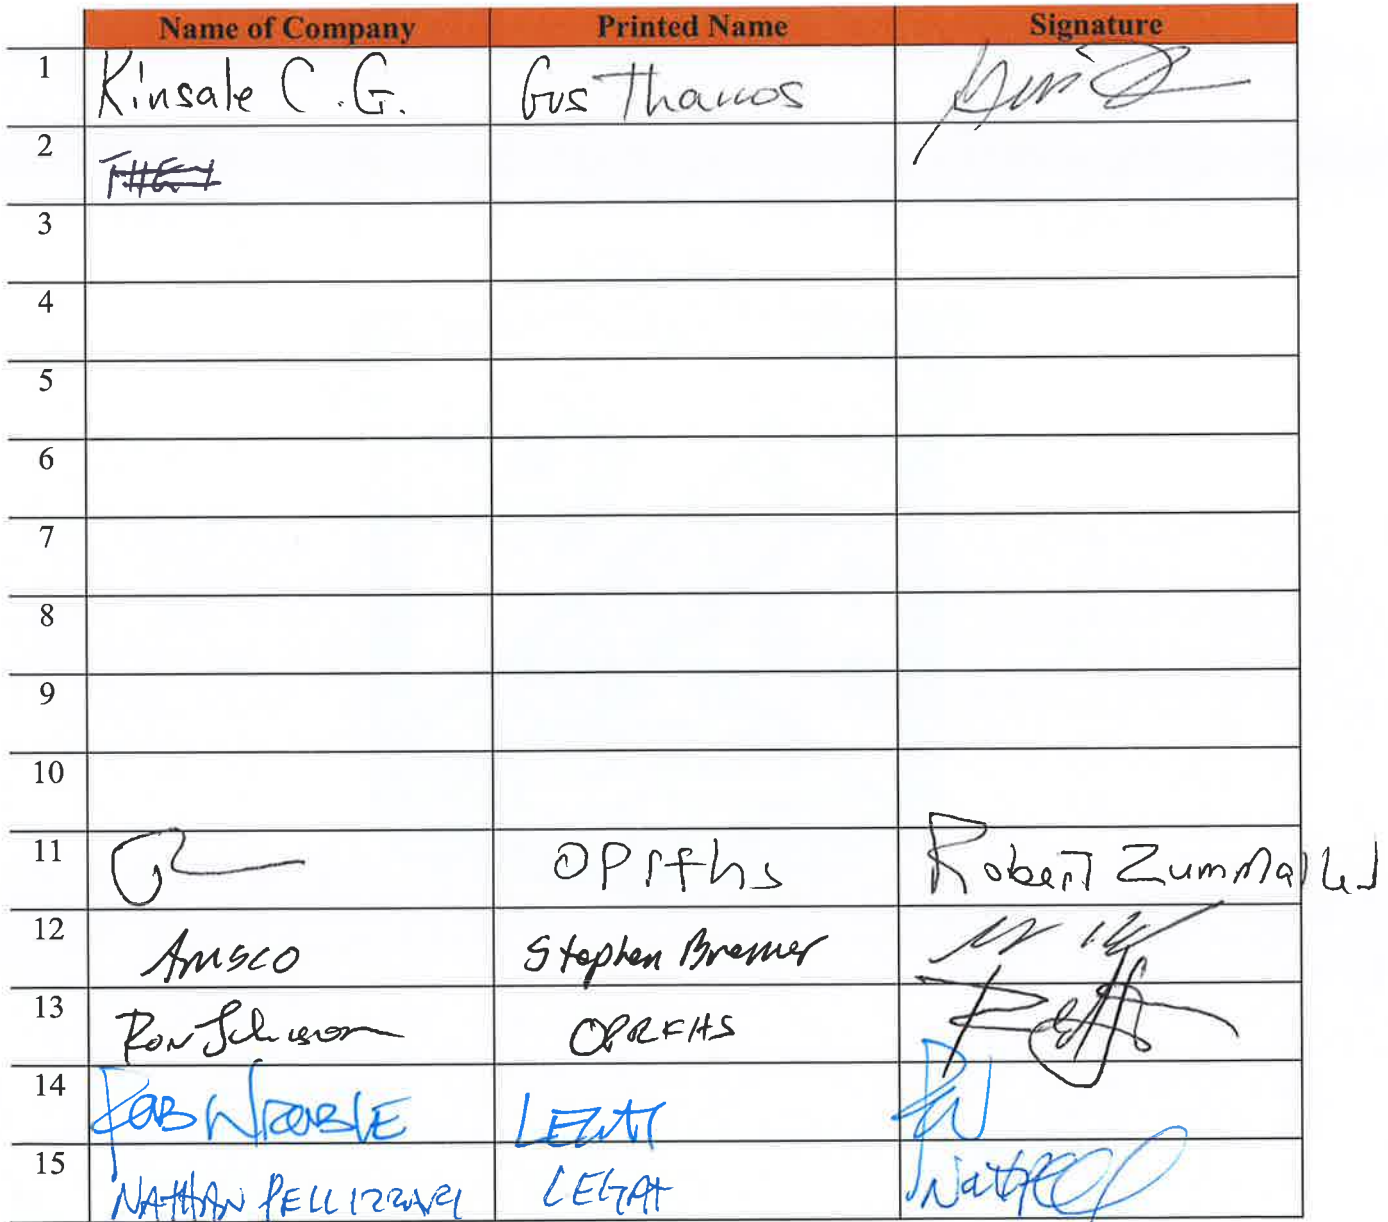 Name of Company Printed Name Signature
1 Kinsale C.G. Gus Thanos
2
3
4
5
6
7
8
9
10
11 OPrfhs Robert
12 Amsco Stephen Bremer
13 Ron Johnson OPRFHS
14 ROB WROBLE LEGAT RW
15 NATHAN PELLIZZARI LEGAT